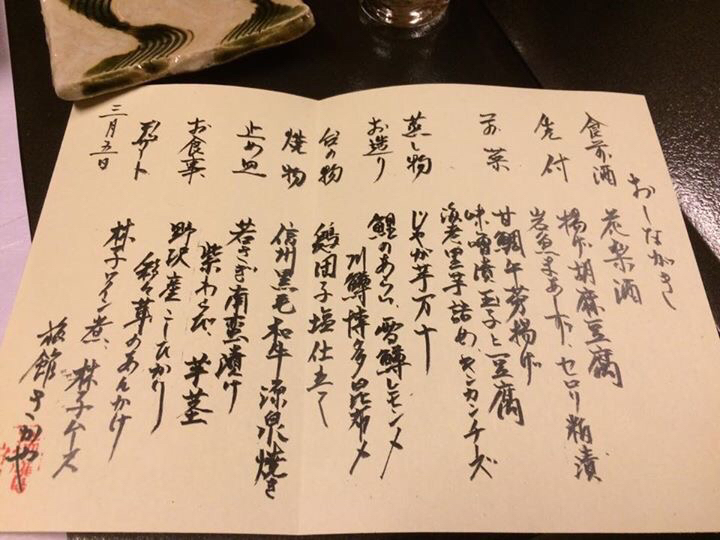 おしながき
食前酒 花梨酒
先付 揚げ胡麻豆腐
岩魚まあしず、セロリ粕漬
前菜 甘鯛牛蒡揚げ
味噌漬玉子と豆腐
海老里芋詰め、キンカンチーズ
蒸し物 じゃが芋万十
お造り 鯉のあらい、雪鱒レモン〆
川鱒博多昆布〆
台の物 鶏団子塩仕立て
焼物 信州黒毛和牛源泉焼き
止め皿 若さぎ南蛮漬け
紫わらび、芋茎
お食事 野沢産こしひかり
野々草のあんかけ
デザート 林子ワイン煮、林子ムース
三月五日
旅館さかや